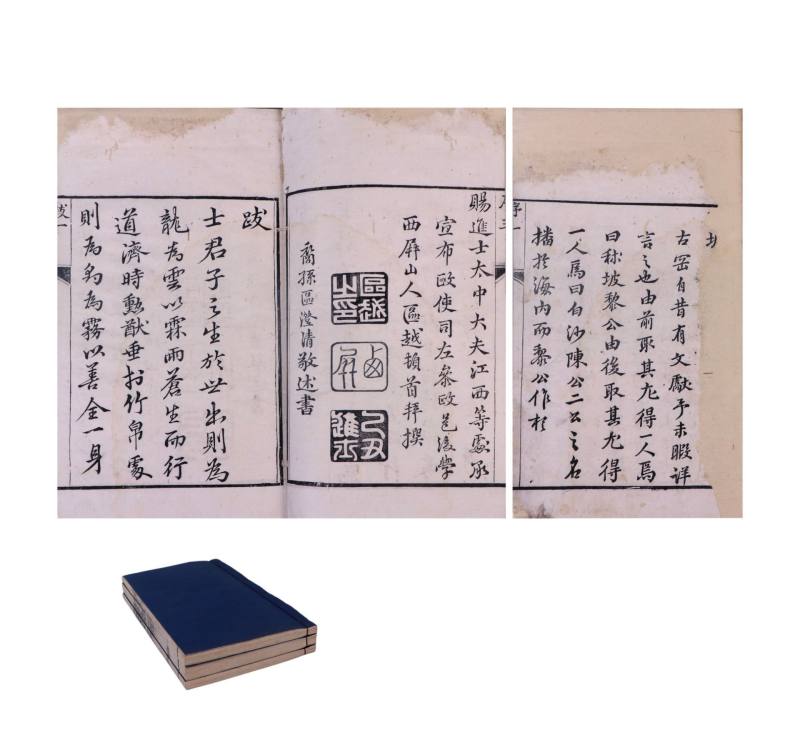 古冈自昔有文獻予未暇詳
言之也由前取其尤得一人焉
曰秫坡黎公由後取其尤得
一人焉曰白沙陳公二公之名
播於海内而黎公作於
序一
序三
賜進士太中大夫江西等處承
宣布政使司左叅政邑後學
西屏山人區越頓首拜撰
區越之印
西屏
乙丑進士
裔孫區澄清敬述書
跋
士君子之生於世出則為
龍為雲以霖雨蒼生而行
道濟時勲猷垂於竹帛處
則為豹為霧以善全一身
跋一